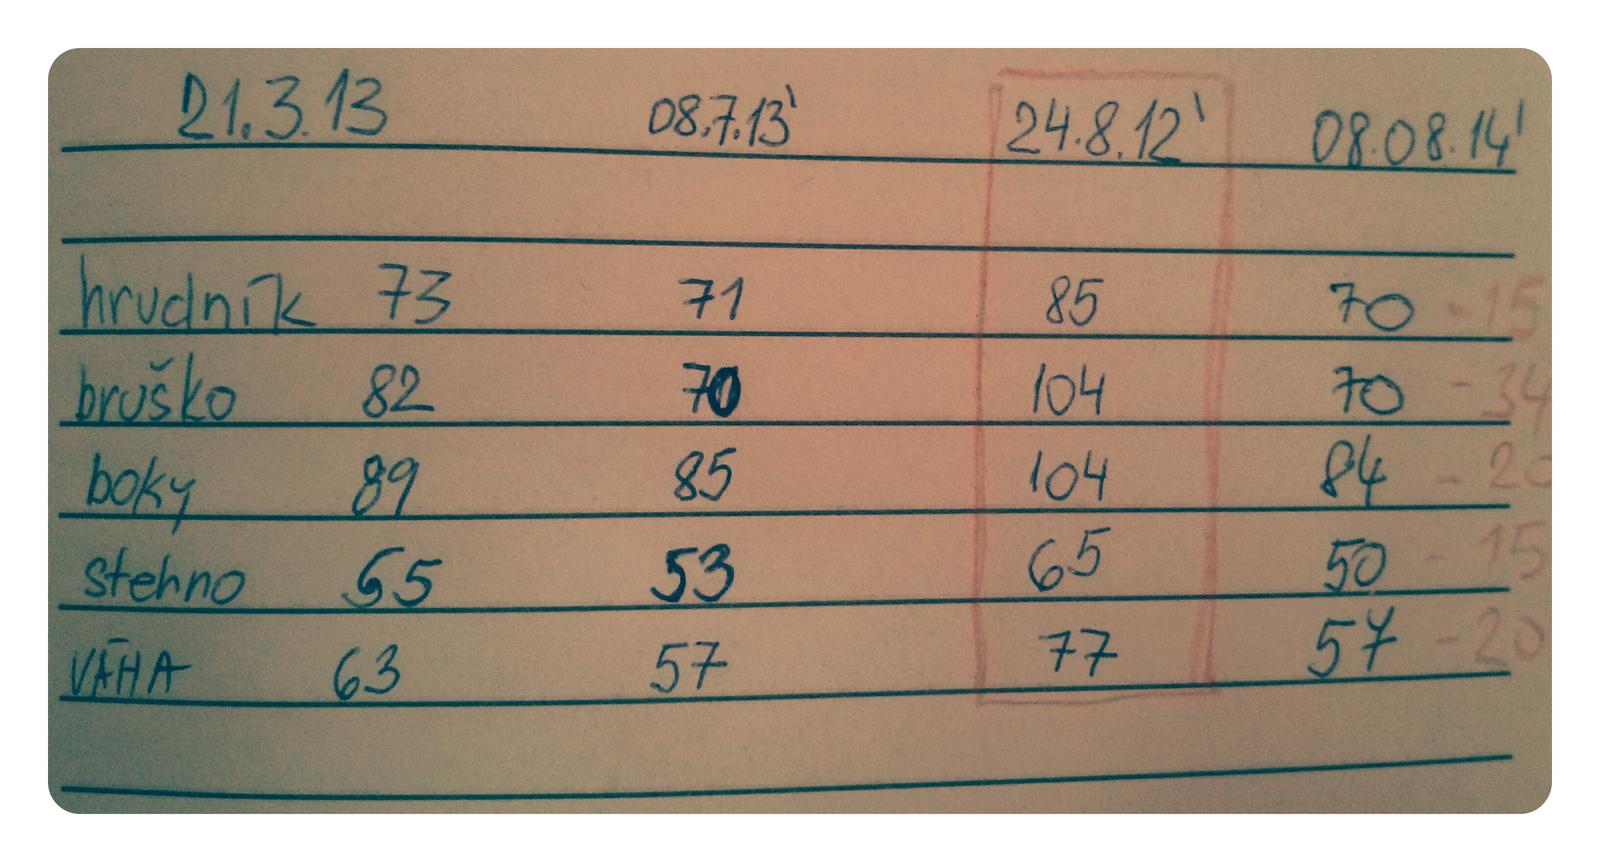 21.3.13 08.7.13' 24.8.12' 08.08.14'
hrudník 73 71 85 70 -15
bruško 82 70 104 70 -34
boky 89 85 104 84 -20
stehno 55 53 65 50 -15
VÁHA 63 57 77 57 -20